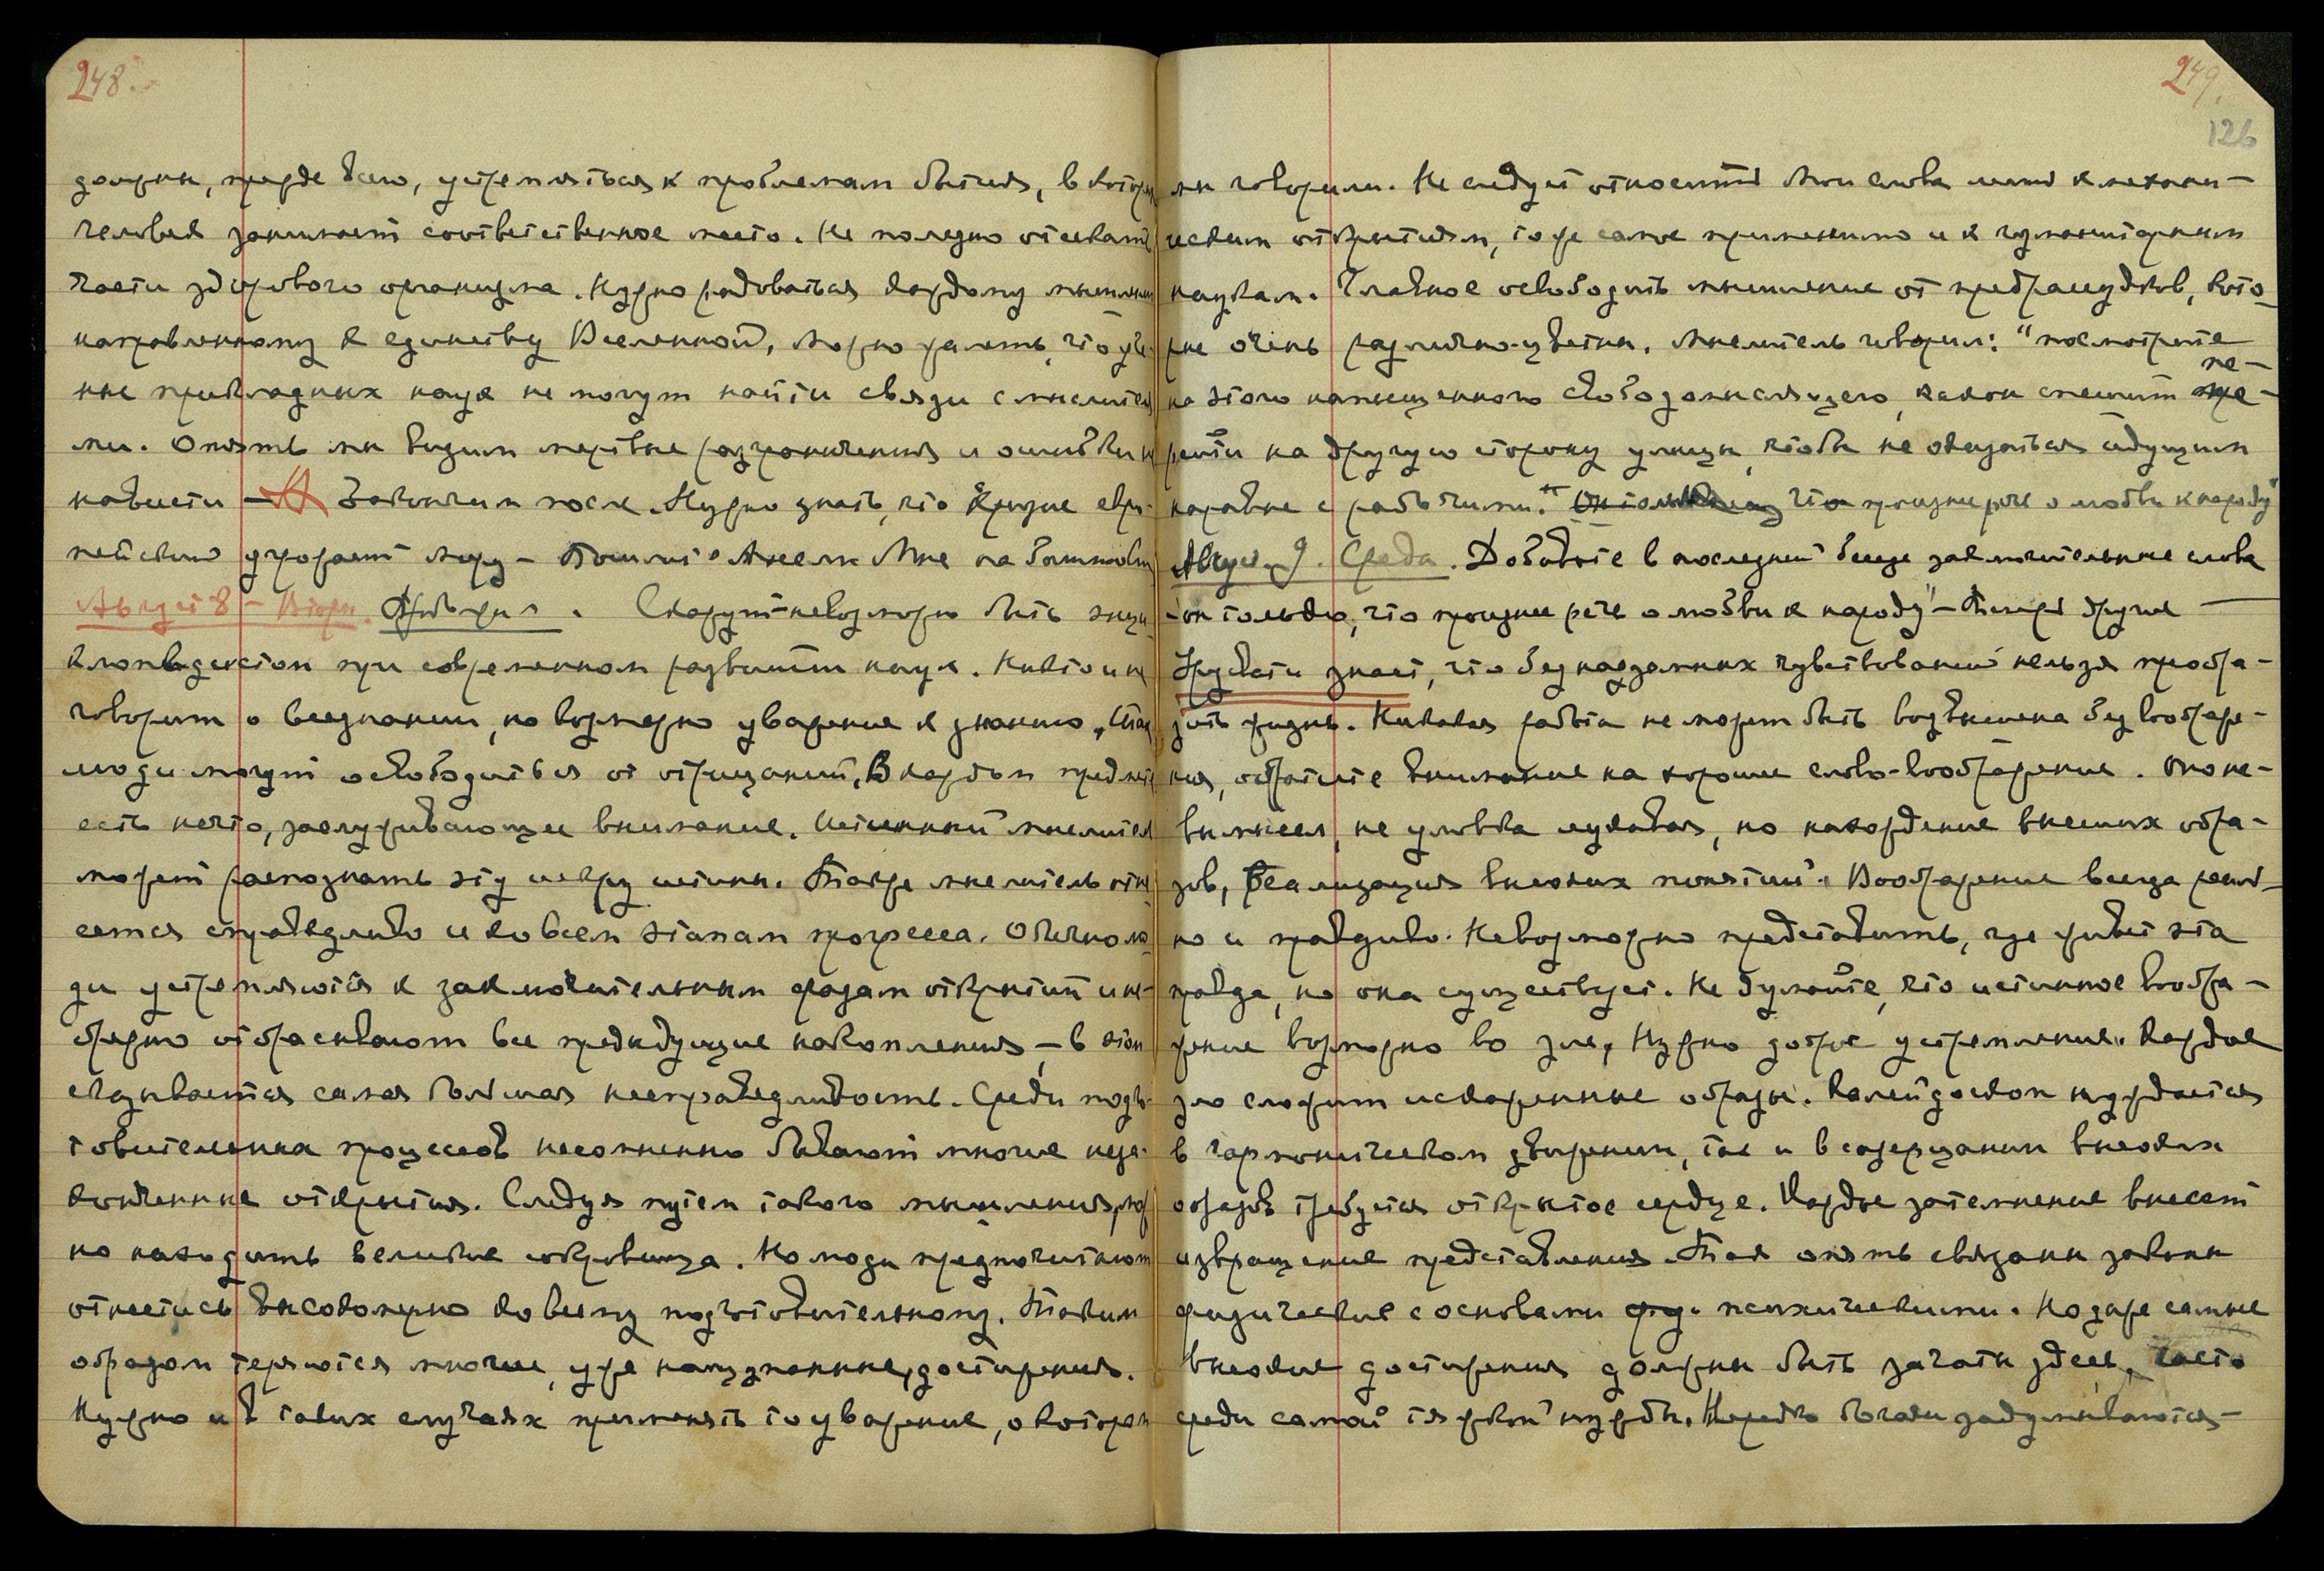 248.
должны, прежде всего, устремляться к проблемам бытия, в котор
человек занимает соответственное место. Не полезно отсекать
части здорового организма. Нужно радоваться каждому мышлен
направленному к единству Вселенной, можно жалеть, что уче-
ные прикладных наук не могут найти связи с мыслител
ми. Опять мы видим мертвые разграничения и ошибки н
навести — Закончим после. Нужно знать, что кризис евро-
пейский угрожает миру —
Август 8 - Вторн. Скажут - невозможно быть энци-
клопедистом при современном развитии наук. Никто и не
говорит о всезнании, но возможно уважение к знанию,
люди могут освободиться от отрицаний, В каждом предмет
есть нечто, заслуживающее внимание. Истинный мыслител
может распознать эту искру истины. Также мыслитель отно-
сится справедливо и ко всем этапам прогресса. Обычно лю-
ди устремляются к заключительным фазам открытий и не-
брежно отбрасывают все предыдущие накопления, - в этом
сказывается самая большая несправедливость. Среди подго-
товительных процессов несомненно бывают многие неза-
конченные открытия. Следуя путем такого мышления, мож
но находить великие сокровища. Но люди предпочитают
отнестись высокомерно ко всему подготовительному. Таким
образом теряются многие, уже намузнанные, достижения.
Нужно и в таких случаях применять то уважение, о котором
249.
126
мы говорили. Не следует относить Мои слова лишь к механи-
ческим открытиям, то же самое применимо и к гуманитарным
наукам. Главное освободить мышление от предрассудков, кото-
рые очень различно-цветны. Мыслитель говорил: "посмотрите
на этого напыщенного свободомыслящего, как он спешит пе-
рейти на другую сторону улицы, чтобы не оказаться идущим
наравне с рабочими. что произнес речь о любви к народу"
Август 9. Среда. Добавьте в последней беседе заключительные слова
"он только, что произнес речь о любви к народу" - Теперь другие —
Урусвати знает, что без надземных чувствований нельзя преобра-
зить жизнь. Никакая работа не может быть возвышена без воображе-
ния, обратите внимание на хорошее слово - воображение. Оно не-
вымысел, не уловка лукавая, но нахождение высших обра-
зов, реализация высоких понятий. Воображение всегда реаль-
но и правдиво. Невозможно представить, где живет эта
правда, но она существует. Не думайте, что истинное вообра-
жение возможно во зле, Нужно доброе устремление. Каждое
зло сложит искаженные образы. Калейдоскоп нуждается
в гармоническом движении, так и в созерцании высоких
образов требуется открытое сердце. Каждое затемнение внесет
извращение представления. Так опять связаны законы
физические с основами психическими. Но даже самые
высокие достижения должны быть зачаты здесь, часто
среди самой тяжкой нужды. Нередко богачи задумываются -